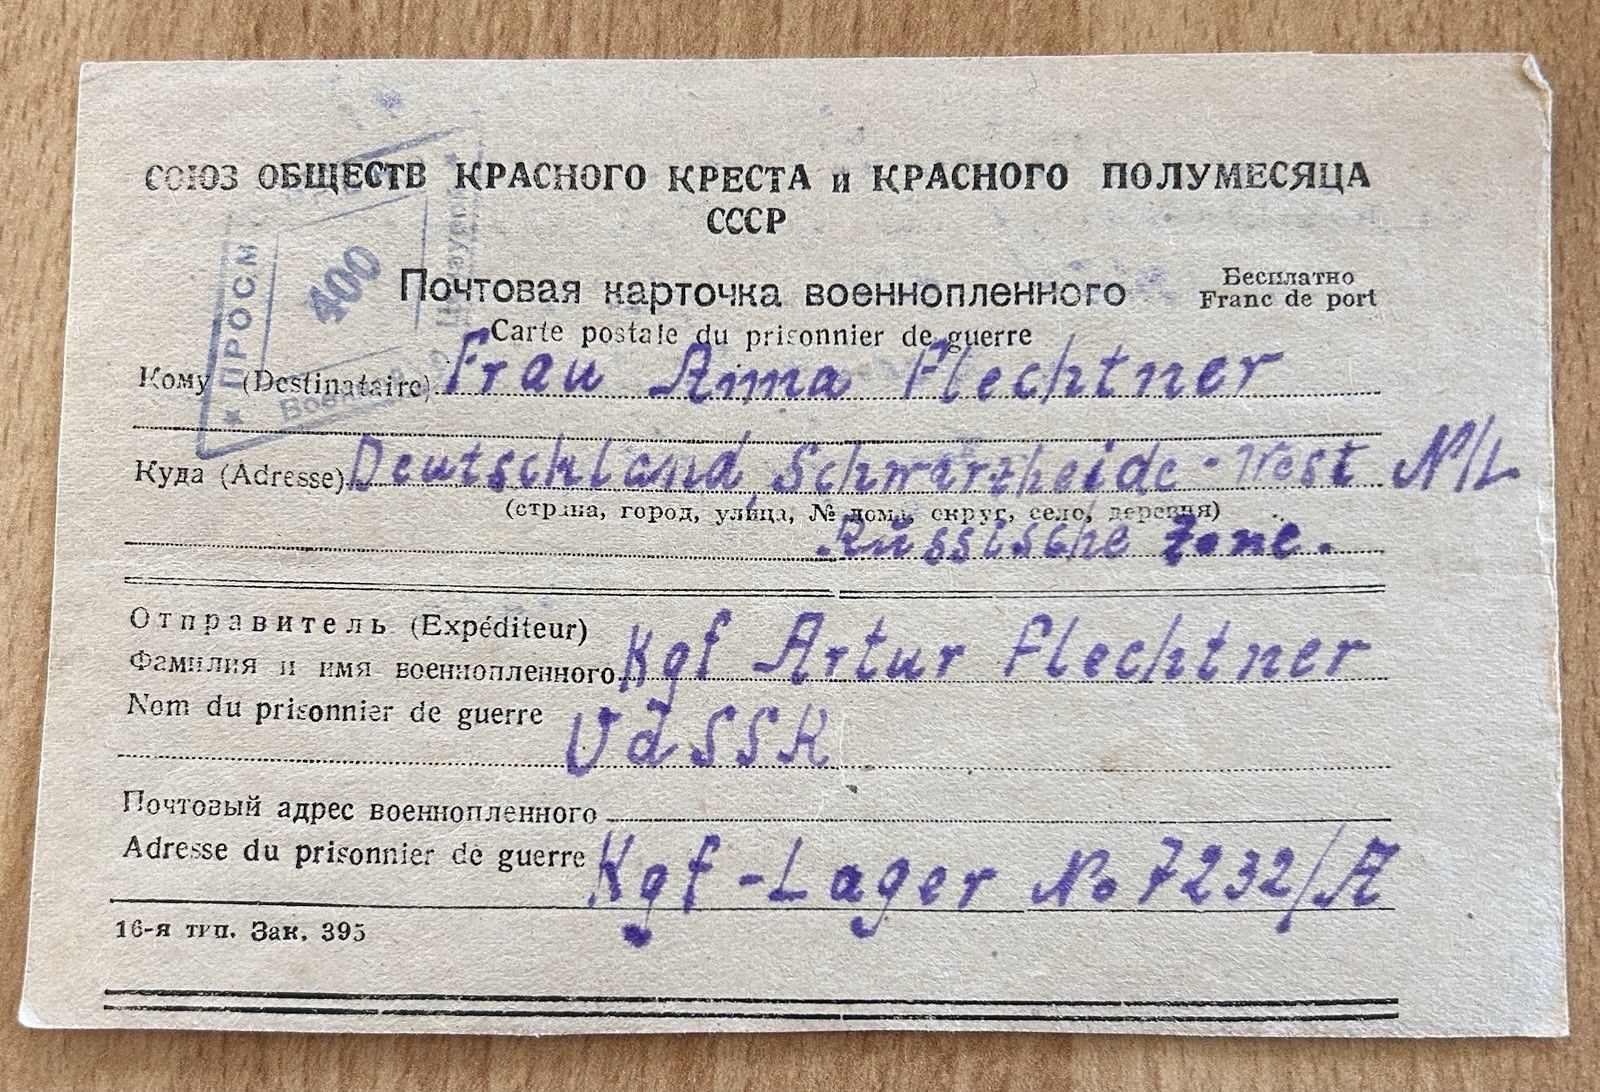 СОЮЗ ОБЩЕСТВ КРАСНОГО КРЕСТА и КРАСНОГО ПОЛУМЕСЯЦА
СССР
Почтовая карточка военнопленного
Бесплатно
Franc de port
Carte postale du prisonnier de guerre
ПРОСМ
400
Кому (Destinataire) Frau Anna Flechtner
Куда (Adresse) Deutschland, Schwarzheide-West N/L
(страна, город, улица, № дома, округ, село, деревня)
Russische Zone.
Отправитель (Expéditeur)
Фамилия и имя военнопленного Kgf Artur Flechtner
Nom du prisonnier de guerre
UdSSR
Почтовый адрес военнопленного
Adresse du prisonnier de guerre Kgf-Lager No 7232/A
16-я тип. Зак. 395